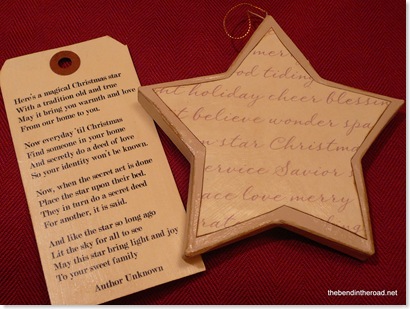 Here's a magical Christmas star
With a tradition old and true
May it bring you warmth and love
From our home to you.
Now everyday 'til Christmas
Find someone in your home
And secretly do a deed of love
So your identity won't be known.
Now, when the secret act is done
Place the star upon their bed.
They in turn do a secret deed
For another, it is said.
And like the star so long ago
Lit the sky for all to see
May this star bring light and joy
To your sweet family
Author Unknown
mer
od tiding
nt holiday cheer blessin
t believe wonder spa
w star Christma
ervice Savior
ace love merry
thebendintheroad.net